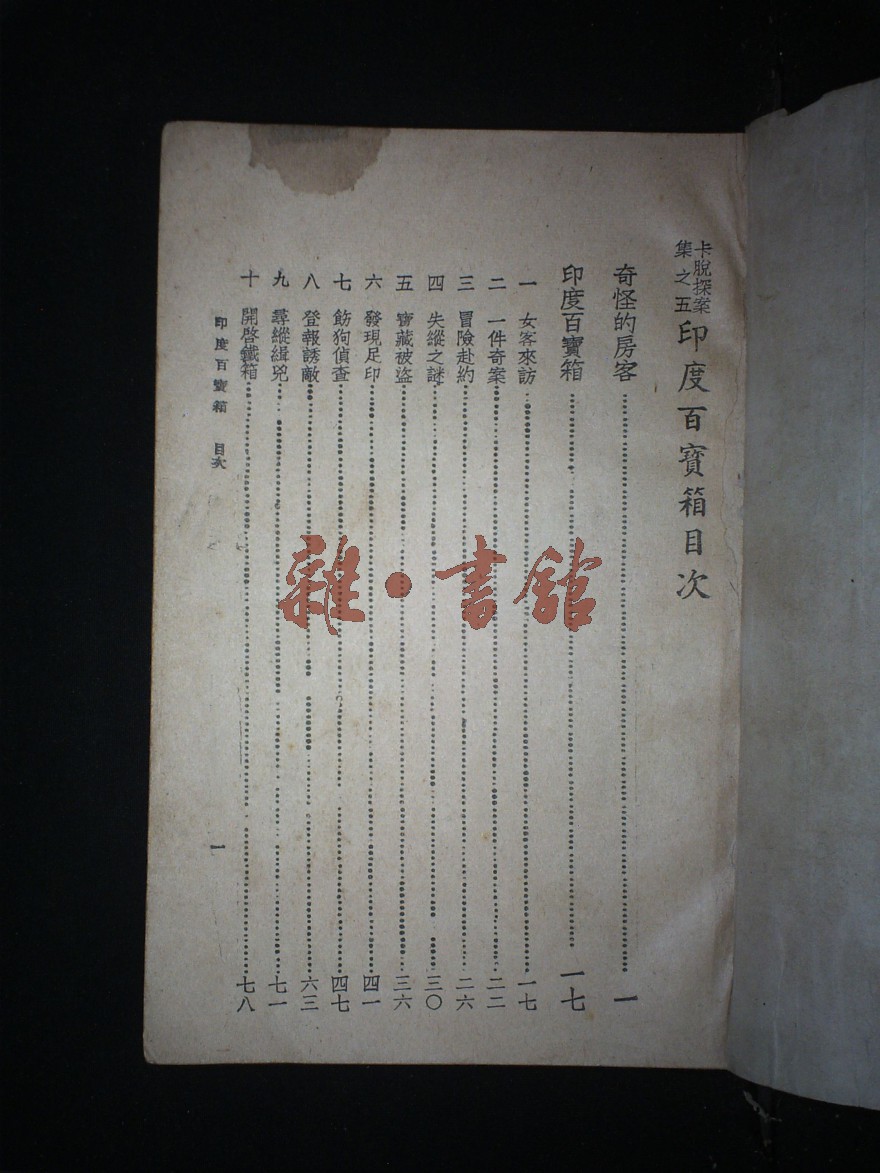 卡脫探案集之五 印度百寶箱目次
奇怪的房客……一
印度百寶箱……一七
一 女客來訪……一七
二 一件奇案……二二
三 冒險赴約……二六
四 失縱之謎……三〇
五 寶藏被盜……三六
六 發現足印……四一
七 飭狗偵查……四七
八 登報誘敵……六三
九 尋縱緝兇……七一
十 開啓鐵箱……七八
印度百寶箱 目次 一
雜·書舘